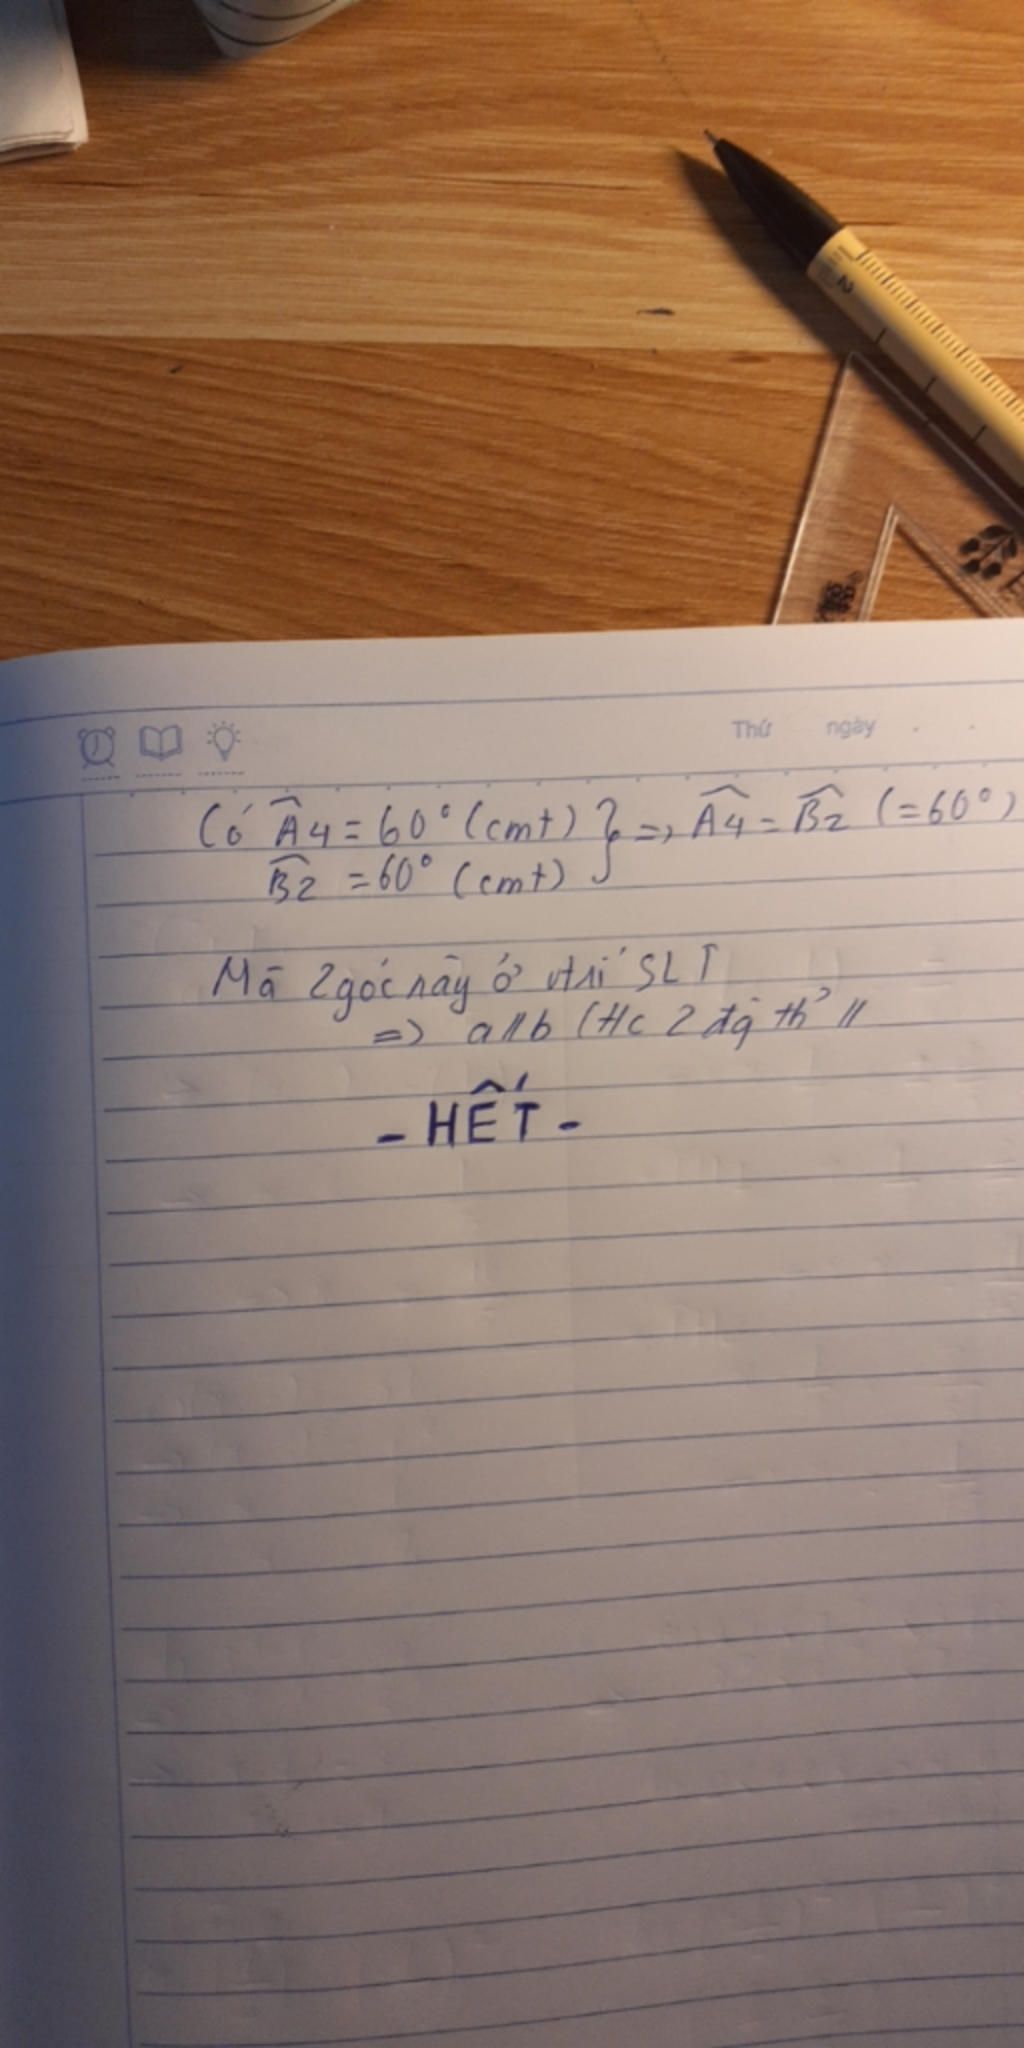 2
Thứ ngày
Có Â4 = 60° (cmt) } => Â4 = B̂2 (=60°)
B̂2 = 60° (cmt)
Mà 2 góc này ở vtrí SLT
=> a // b (t/c 2 đg th² //
- HẾT -